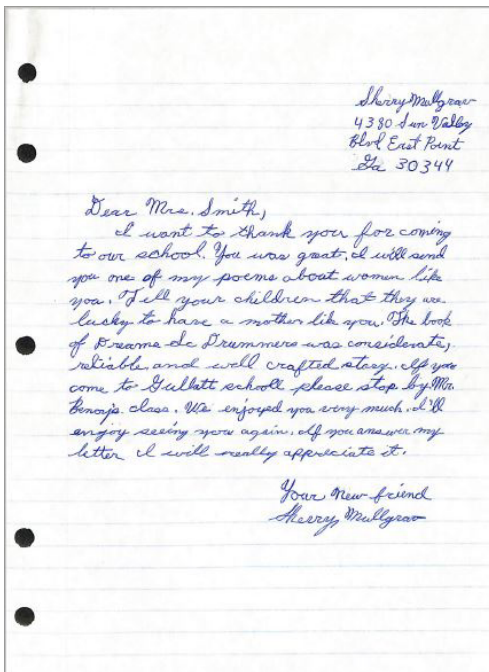 Sherry Mullgrav
4380 Sun Valley
Blvd East Point
Ga 30344
Dear Mrs. Smith,
I want to thank you for coming
to our school. You was great. I will send
you one of my poems about women like
you. Tell your children that they are
lucky to have a mother like you. The book
of Dreams & Drummers was considerate,
reliable and well crafted story. If you
come to Gullatt school please stop by Mr.
class. We enjoyed you very much. I'll
enjoy seeing you again. If you answer my
letter I will really appreciate it.
Your new friend
Sherry Mullgrav